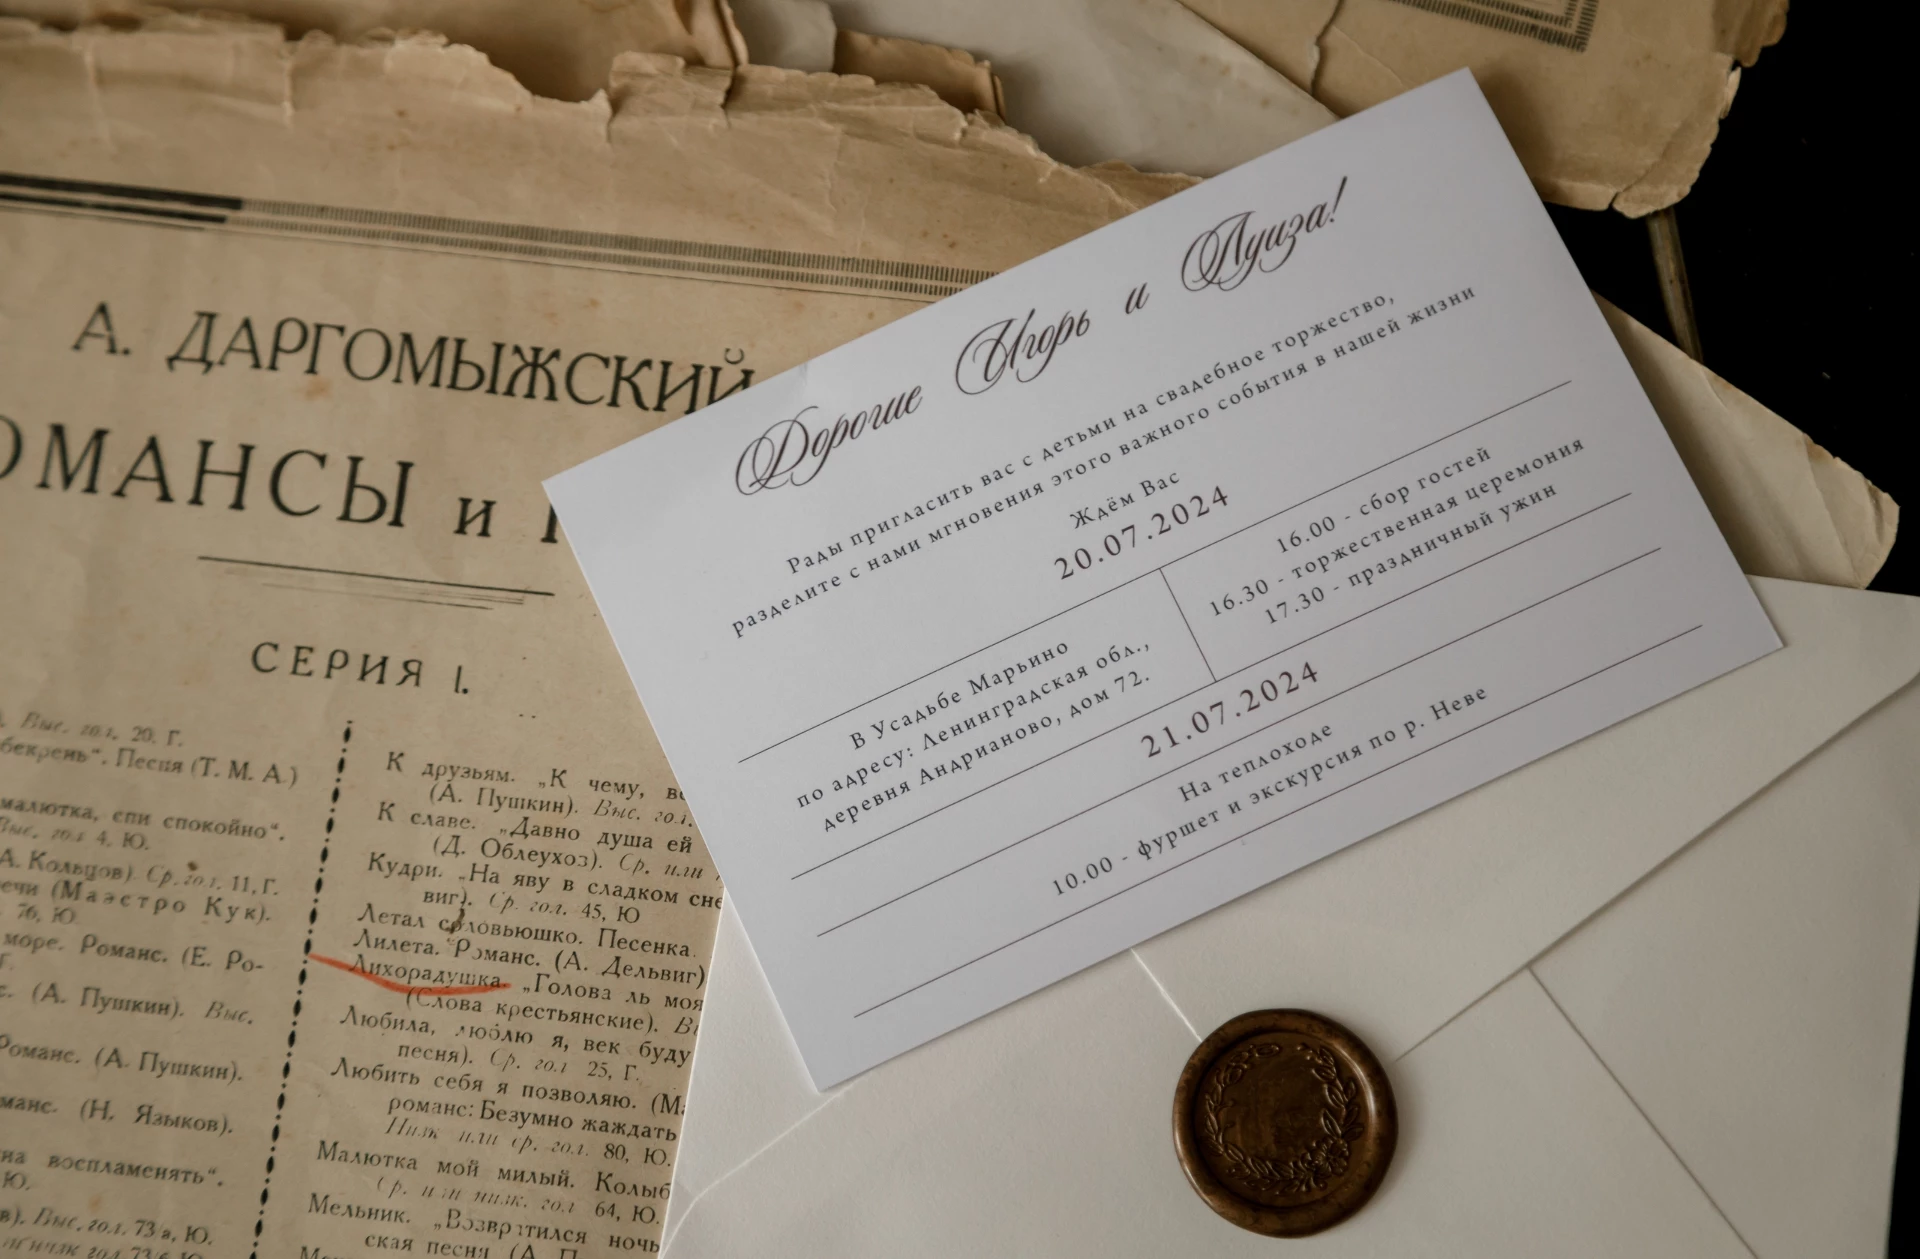 А. ДАРГОМЫЖСКИЙ
ОМАНСЫ и
СЕРИЯ I.
Выс. гол. 20. Г.
бекрень". Песня (Т. М. А.)
малютка, спи спокойно".
Выс. гол 4, Ю.
А. Кольцов). Ср. гол. 11, Г.
ечи (Маэстро Кук).
76, Ю.
море. Романс. (Е. Ро-
Г.
с. (А. Пушкин). Выс.
Романс. (А. Пушкин).
манс. (Н. Языков).
на воспламенять".
Ю.
в). Выс. гол. 73/а, Ю.
К друзьям. „К чему,
(А. Пушкин). Выс. гол.
К славе. „Давно душа ей
(Д. Облеухоз). Ср. или
Кудри. „На яву в сладком сне
виг). Ср. гол. 45, Ю
Летал соловьюшко. Песенка.
Лилета. Романс. (А. Дельвиг)
Лихорадушка. „Голова ль моя
(Слова крестьянские). В
Любила, люблю я, век буду
песня). Ср. гол 25, Г.
Любить себя я позволяю. (М
романс: Безумно жаждать
Низк или ср. гол. 80, Ю.
Малютка мой милый. Колыб
Ср. или низк. гол 64, Ю.
Мельник. „Возвратился ночь
ская песня (А. П
Дорогие Игорь и Луиза!
Рады пригласить вас с детьми на свадебное торжество,
разделите с нами мгновения этого важного события в нашей жизни
Ждём Вас
20.07.2024
В Усадьбе Марьино
по адресу: Ленинградская обл.,
деревня Андрианово, дом 72.
16.00 - сбор гостей
16.30 - торжественная церемония
17.30 - праздничный ужин
21.07.2024
На теплоходе
10.00 - фуршет и экскурсия по р. Неве